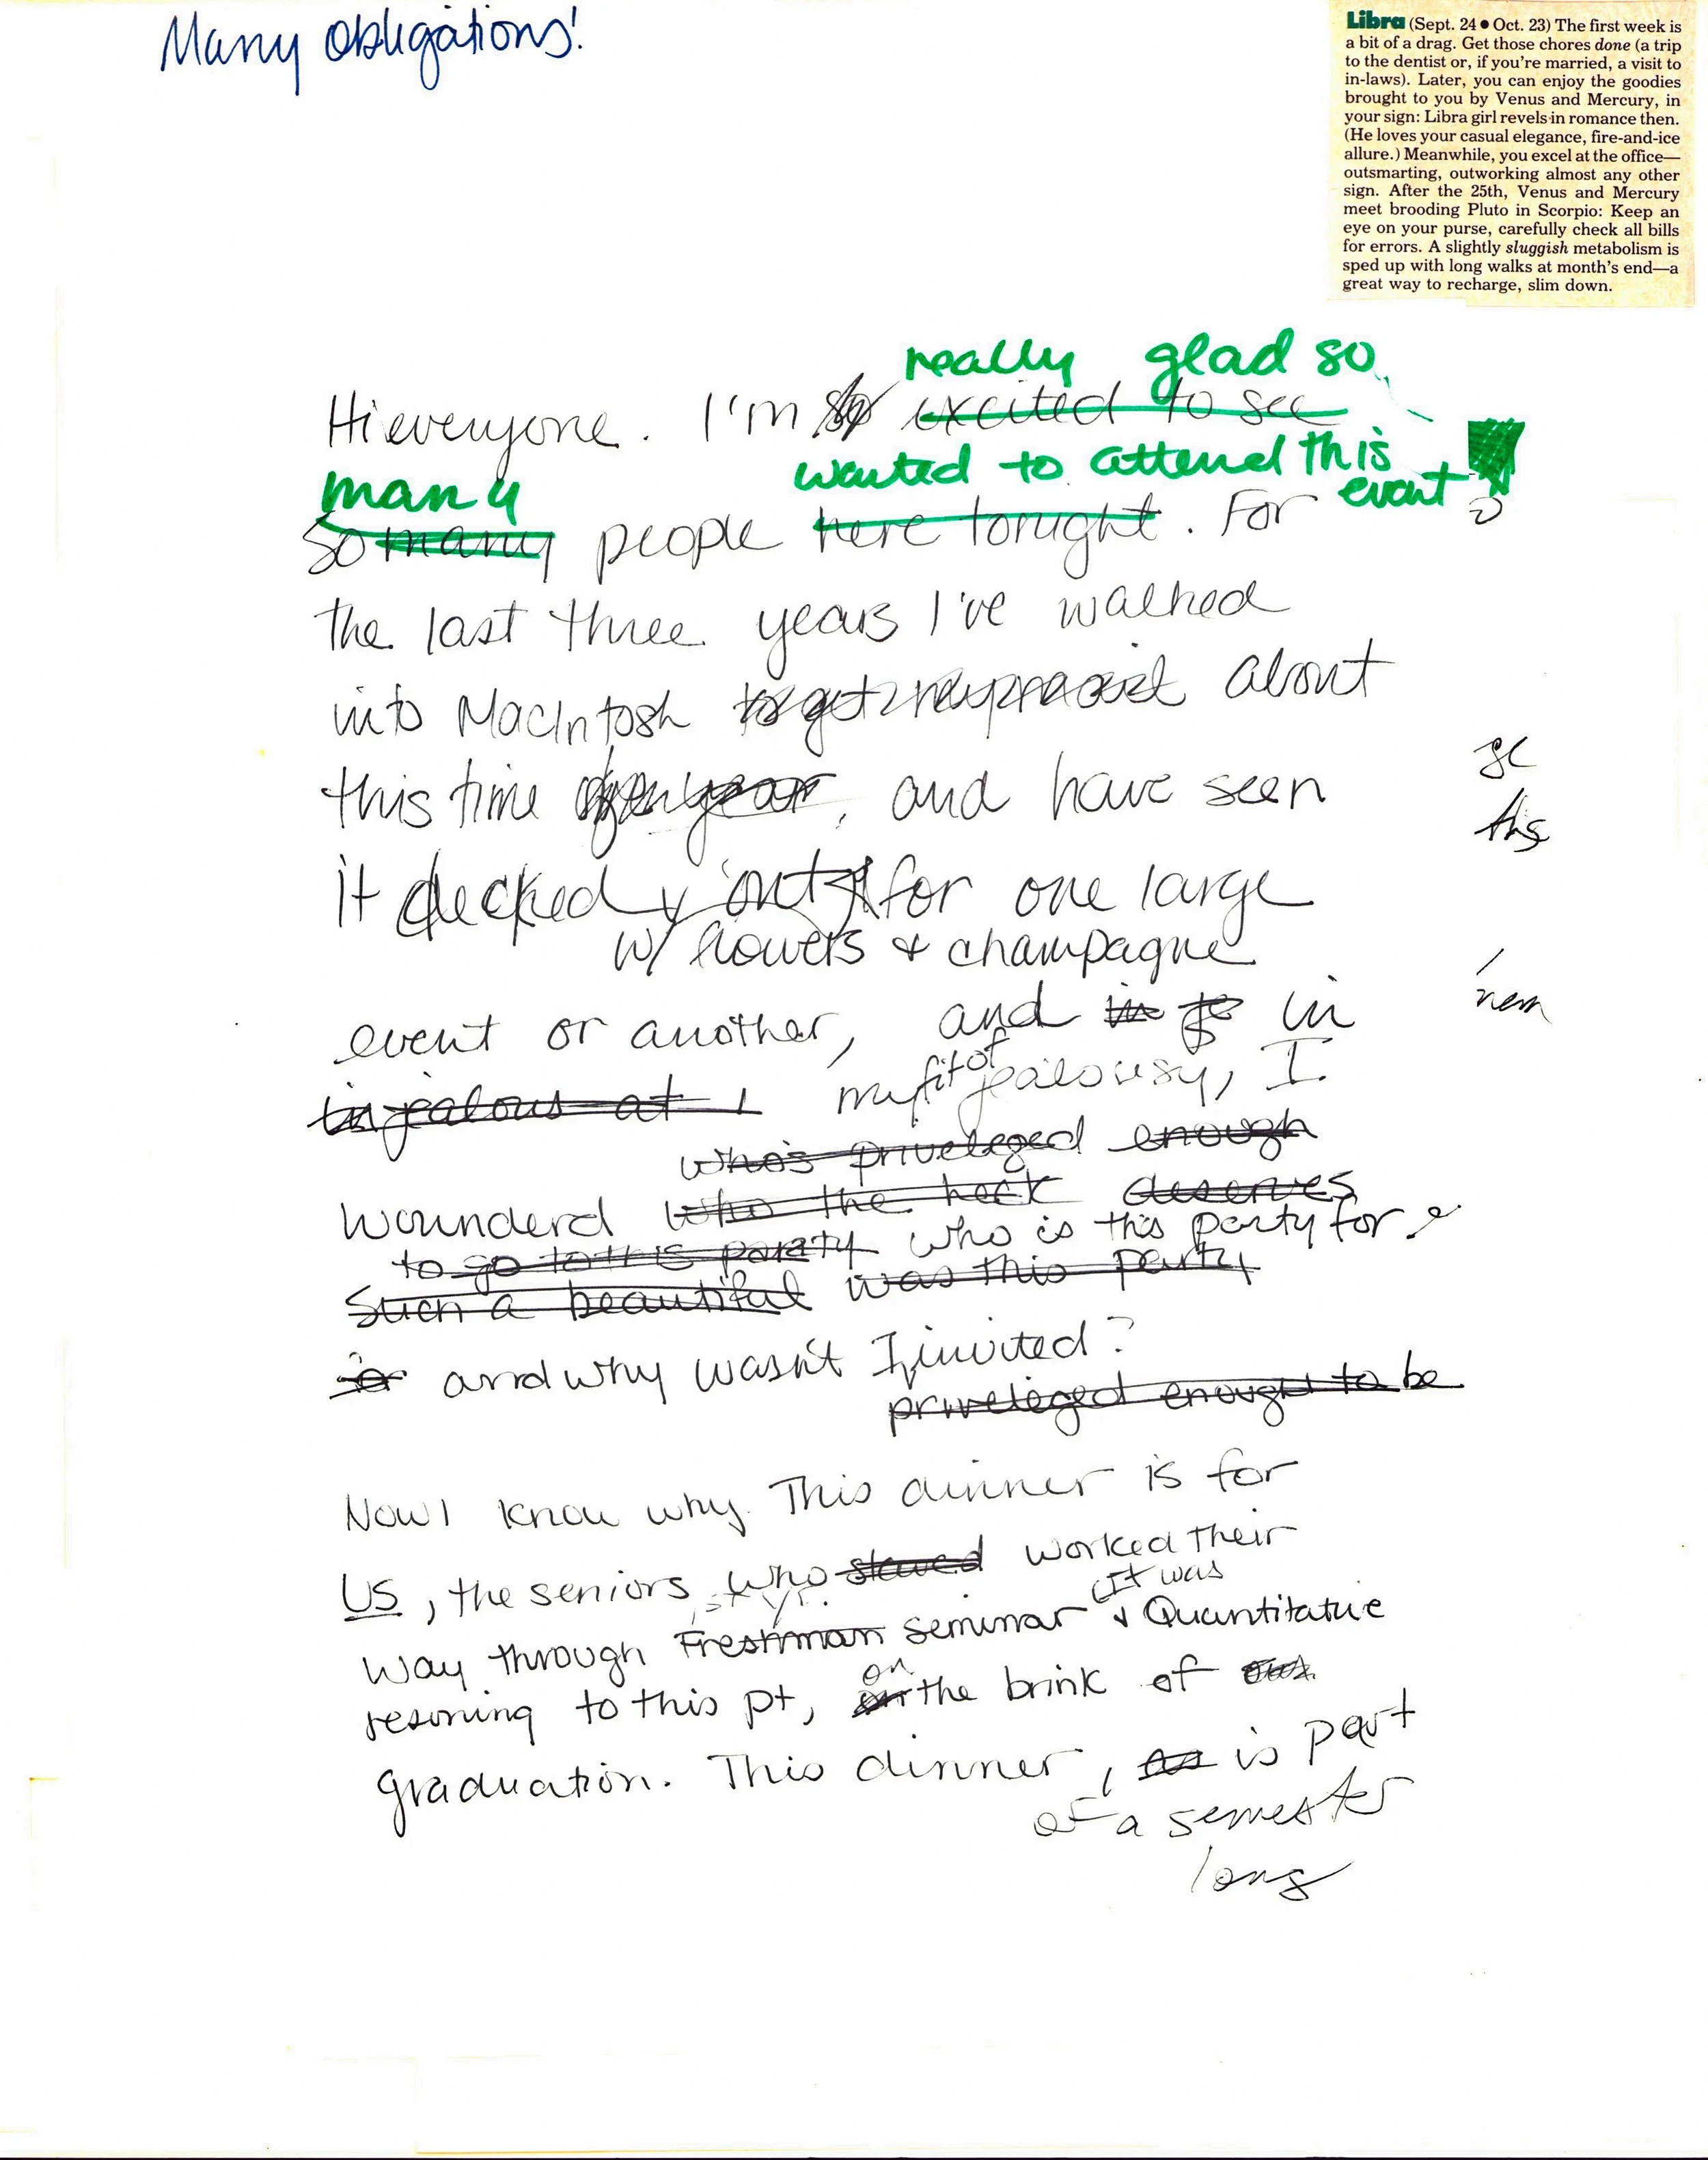 Many Obligations!
Libra (Sept. 24 ● Oct. 23) The first week is
a bit of a drag. Get those chores done (a trip
to the dentist or, if you're married, a visit to
in-laws). Later, you can enjoy the goodies
brought to you by Venus and Mercury, in
your sign: Libra girl revels in romance then.
(He loves your casual elegance, fire-and-ice
allure.) Meanwhile, you excel at the office—
outsmarting, outworking almost any other
sign. After the 25th, Venus and Mercury
meet brooding Pluto in Scorpio: Keep an
eye on your purse, carefully check all bills
for errors. A slightly sluggish metabolism is
sped up with long walks at month's end—a
great way to recharge, slim down.
really glad so
Hi everyone. I'm so excited to see
wanted to attend this
many
event
so many people here tonight. For
the last three years I've walked
into MacIntosh to get about
this time year, and have seen
it decked out for one large
w/ flowers & champagne
event or another, and in in
my fit of jealousy, I
in jealous at
who's priveleged enough
Wounderd who the heck deserves
to go to this party who is this party for
such a beautiful was this party
and why wasn't I invited?
priveleged enough to be
Now I know why. This dinner is for
US, the seniors who slaved worked their
It was
way through Freshman seminar & Quantitative
on
resoning to this pt, the brink of
graduation. This dinner, is part
of a semester
long